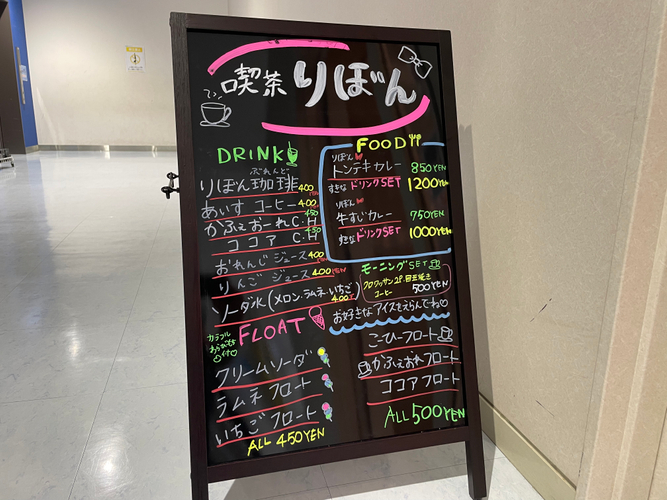 喫茶 りぼん
DRINK
ぶれんど
りぼん珈琲 400 YEN
あいす コーヒー 400
かふぇおーれ C・H 450
ココア C・H 450
おれんじ ジュース 400
りんご ジュース 400 YEN
ソーダ水(メロン・ラムネ・いちご) 400
FOOD
りぼん
トンテキカレー 850YEN
すきな ドリンクSET 1200YEN
りぼん
牛すじカレー 750YEN
すきな ドリンクSET 1000YEN
モーニングSET
クロワッサン2P・目玉焼き
コーヒー 500YEN
お好きなアイスをえらんでね
カラフル
付
FLOAT
クリームソーダ
ラムネ フロート
いちご フロート
ALL 450YEN
こーひーフロート
かふぇおれフロート
ココアフロート
ALL 500YEN